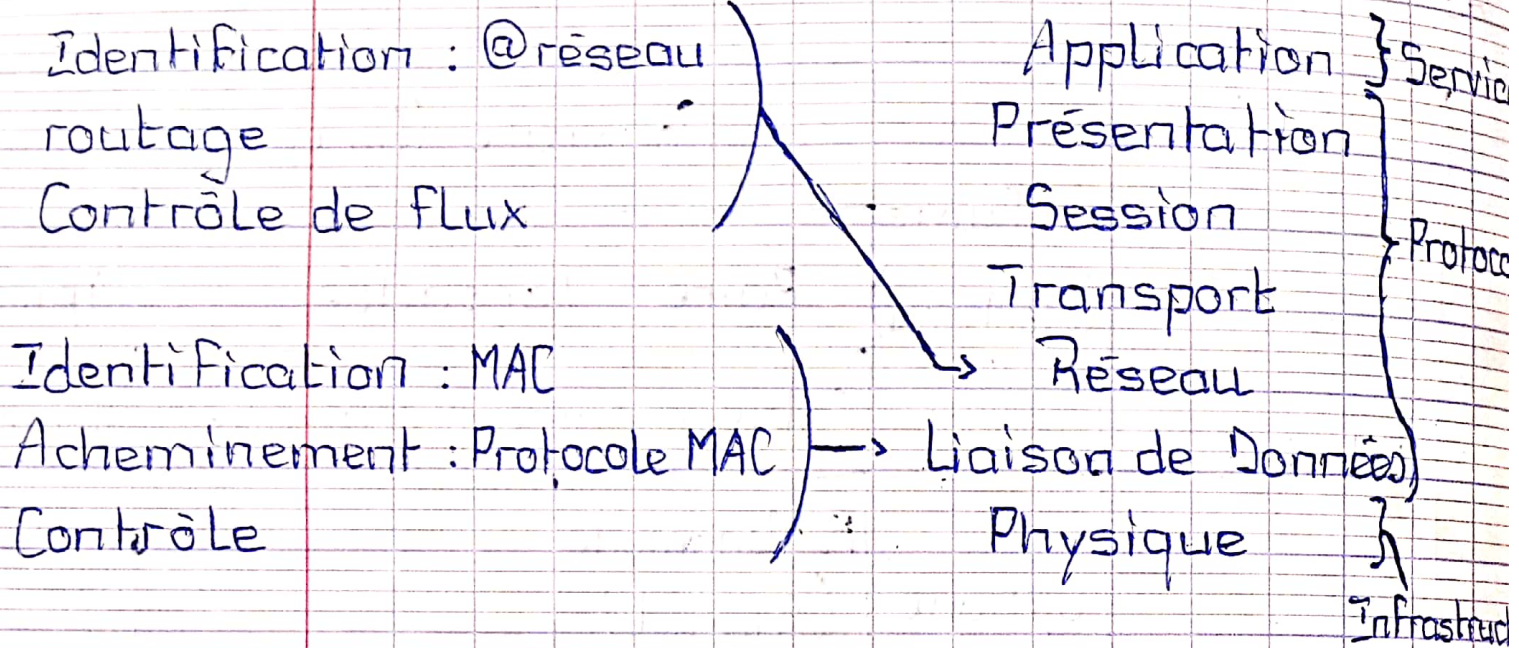 Identification : @réseau
routage
Contrôle de flux
Identification : MAC
Acheminement : Protocole MAC
Contrôle
Application
Présentation
Session
Transport
Réseau
Liaison de Données
Physique
Servic
Protoco
Infrastruc